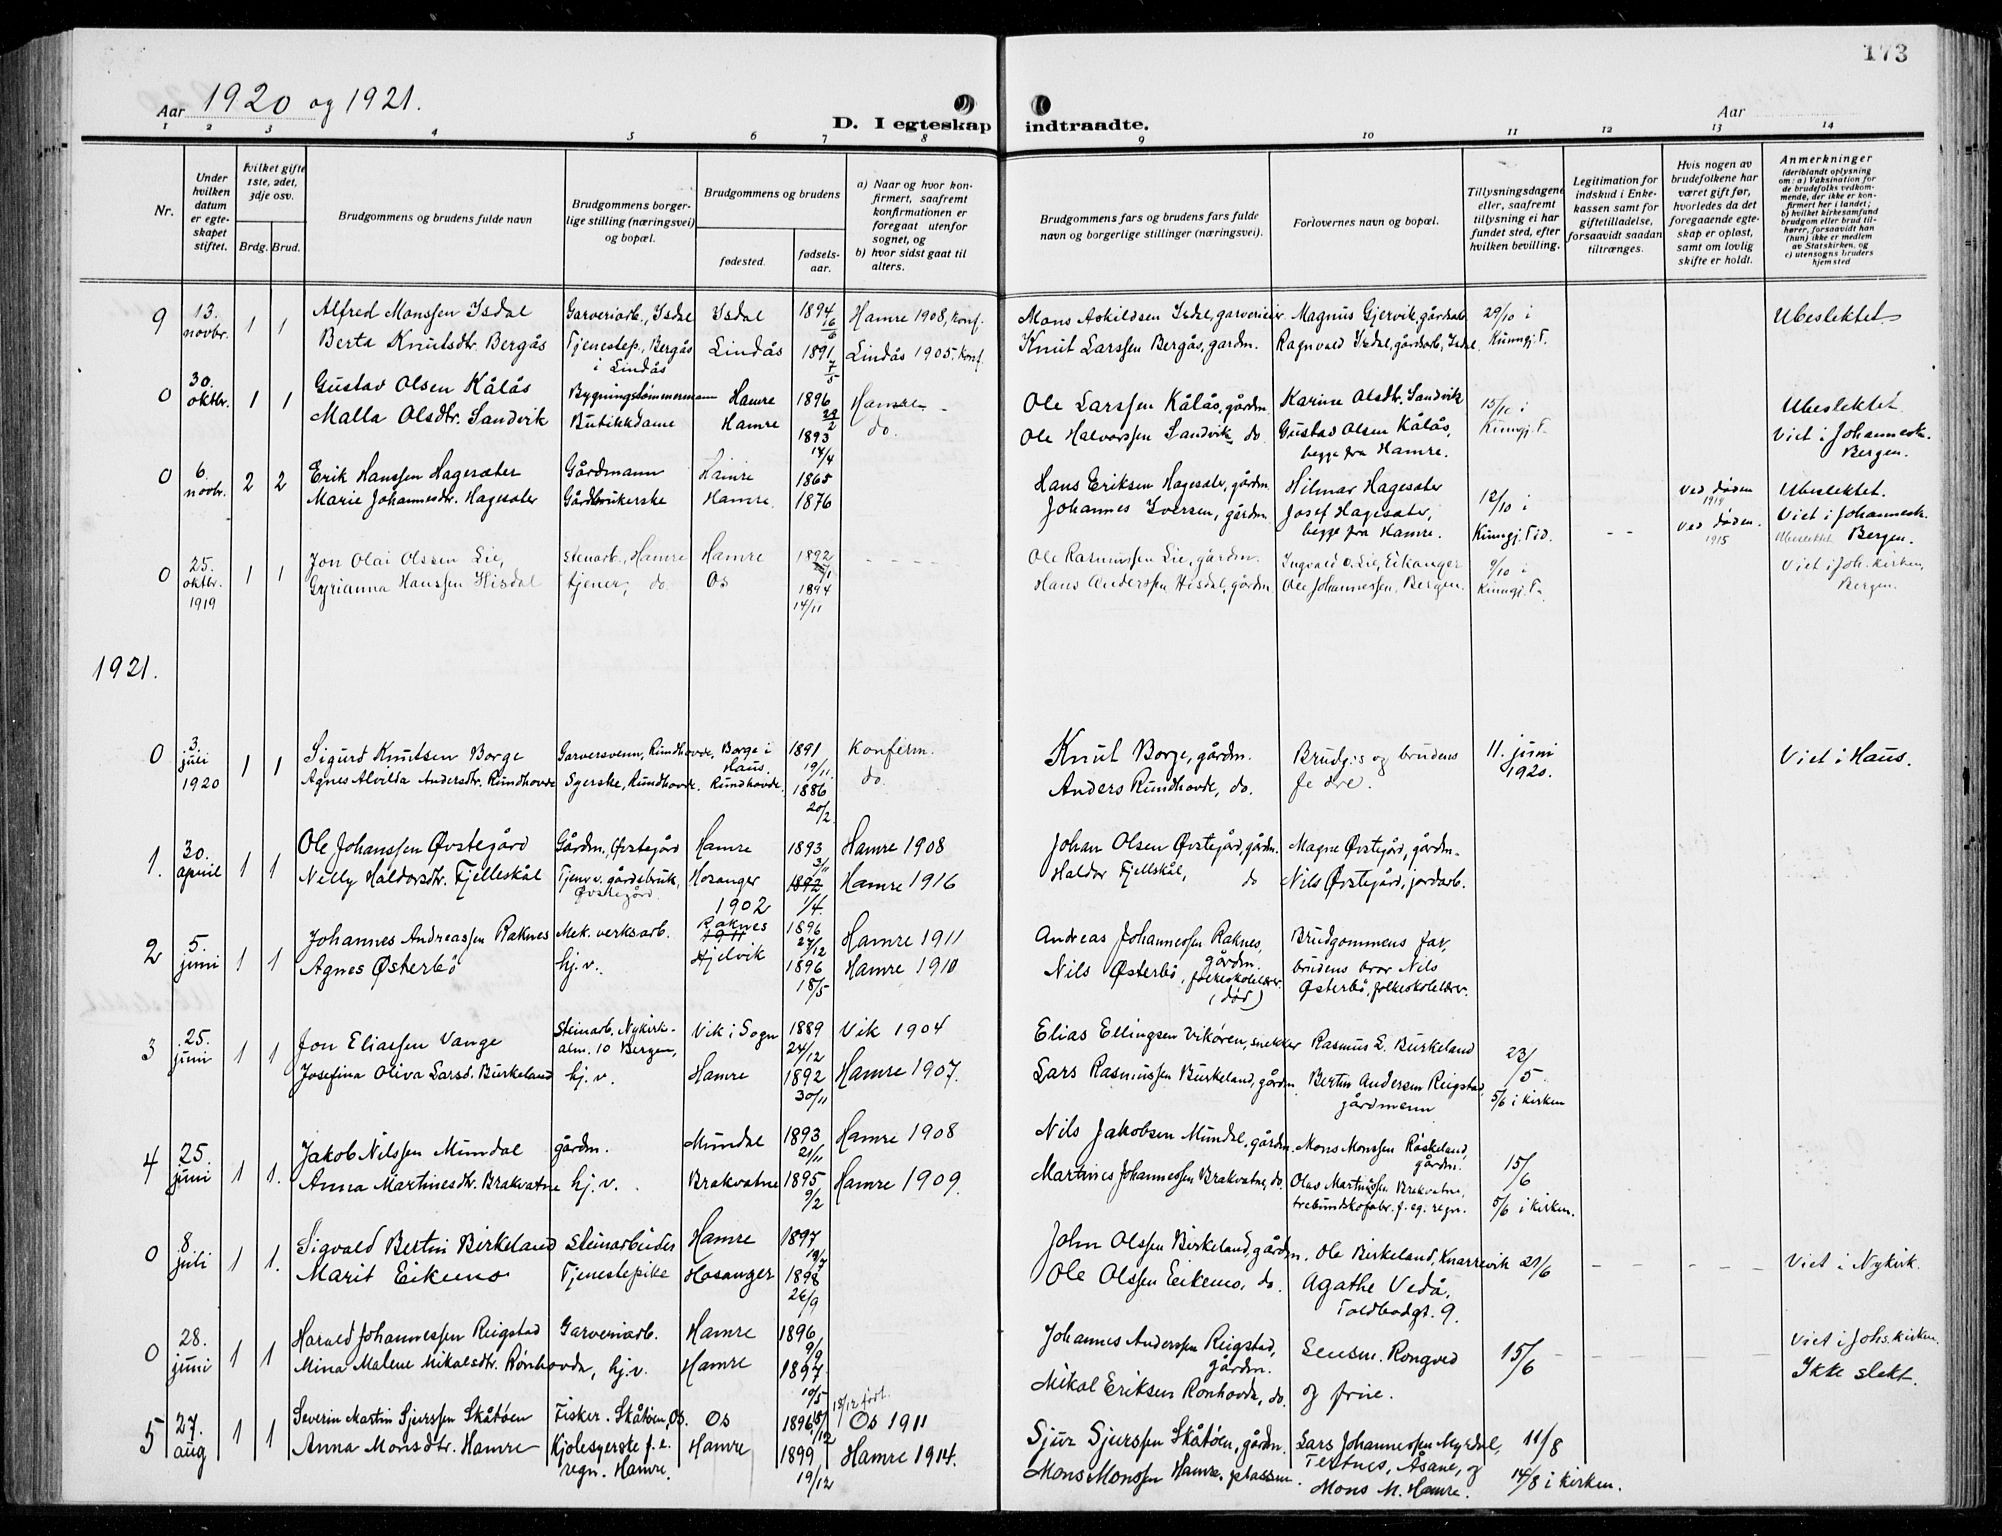 173
Aar 1920 og 1921.
Aar
D. I egteskap indtraadte.
1 2 3 4 5 6 7 8 9 10 11 12 13 14
Nr.
Under hvilken datum er egteskapet stiftet.
Hvilket gifte 1ste, 2det, 3dje osv.
Brdg. Brud.
Brudgommens og brudens fulde navn
Brudgommens borgerlige stilling (næringsvei) og bopæl.
Brudgommens og brudens
fødested.
fødselsaar.
a) Naar og hvor konfirmert, saafremt konfirmationen er foregaat utenfor sognet, og
b) hvor sidst gaat til alters.
Brudgommens fars og brudens fars fulde navn og borgerlige stillinger (næringsvei).
Forlovernes navn og bopæl.
Tillysningsdagene eller, saafremt tillysning ei har fundet sted, efter hvilken bevilling.
Legitimation for indskud i Enkekassen samt for giftetilladelse, forsaavidt saadan tiltrænges.
Hvis nogen av brudefolkene har været gift før, hvorledes da det foregaaende egteskap er opløst, samt om lovlig skifte er holdt.
Anmerkninger (deriblandt oplysning om: a) Vaksination for de brudefolks vedkommende, der ikke er konfirmert her i landet; b) hvilket kirkesamfund brudgom eller brud tilhører, forsaavidt han (hun) ikke er medlem av Statskirken, og c) utensogns bruders hjemsted
9 13. novbr. 1 1 Alfred Monssen Isdal Garveriarb., Isdal Isdal 1894 16/6 Hamre 1908, konf. Mons Askildsen Isdal, garverieier Magnus Gjervik, gårdarb. 29/10 i Ubeslektet
Berta Knutsdtr. Bergås Tjenestep., Bergås i Lindås Lindås 1891 7/5 Lindås 1905. konf. Knut Larssen Bergås, gardm. Ragnvald Isdal, gårdsarb, Isdal. Kunngj. T.
0 30. oktbr. 1 1 Gustav Olsen Kålås Bygningstømmermann Hamre 1896 22/2 Hamre Ole Larssen Kålås, gårdm. Karine Olsdtr. Sandvik 15/10 i Ubeslektet.
Malla Olsdtr. Sandvik Butikkdame Hamre 1893 14/4 do. Ole Halvorssen Sandvik do. Gustav Olsen Kålås, begge fra Hamre. Kunngj. T. Viet i Johannesk. Bergen.
0 6. novbr. 2 2 Erik Hanssen Hagesæter Gårdmann Hamre 1865 Hans Eriksen Hagesæter, gårdm. Hilmar Hagesæter 12/10 i Ved døden 1919 Ubeslektet.
Marie Johannesdtr. Hagesæter Gårdbrukerske Hamre. 1876 Johannes Iversen, gårdm. Josef Hagesæter, begge fra Hamre. Kunngj. Tid. - - Ved døden. 1915 Viet i Johannesk. Bergen.
0 25. oktbr. 1919 1 1 Jon Olai Olssen Lie, stenarb., Hamre Hamre 1892 - - - - Ole Rasmussen Lie, gårdm. Ingvald O. Lie, Eikanger 9/10 i Ubeslektet
Gyrianna Hanssen Hisdal tjener, do. Os 1894 14/11 Hans Anderssen Hisdal, gårdm. Ole Johannessen, Bergen. Kunngj. T. Viet i Joh. kirken, Bergen.
1921.
0 3. juli 1920 1 1 Sigurd Knutsen Borge Garversvenn, Rundhovde, Borge i Haus. 1891 19/11. Konfirm. Knut Borge, gårdm. Brudg.s og brudens fedre. 11. juni 1920. Viet i Haus.
Agnes Alvilda Andersdtr. Rundhovde Syerske, Rundhovde. Rundhovde. 1886 20/2. do. Anders Rundhovde, do.
1. 30. april 1 1 Ole Johanssen Øvstegård Gårdm., Øvstegård Hamre 1893 3/11 Hamre 1908 Johan Olsen Øvstegård, gårdm. Magne Øvstegård, gårdm.
Nelly Haldorsdtr. Fjelleskål Tjen. v. gårdsbruk, Øvstegård. Hosanger 1902 1892 1/4. Hamre 1916 Haldor Fjellskål, do Nils Øvstegård, jordarb.
2 5. juni 1 1 Johannes Andreassen Raknes Mek. verksarb. Raknes 1911 1896 27/12 Hamre 1911 Andreas Johannessen Raknes, gårdm. Brudgommens far,
Agnes Østerbø hj.v. Hjelvik 1896 18/5 Hamre 1910 Nils Østerbø, folkeskolelærer (død) brudens bror Nils Østerbø, folkeskolelærer.
3 25. juni 1 1 Jon Eliassen Vange Steinarb., Nykirkalm. 10 Bergen, Vik i Sogn 1889 24/12 Vik 1904 Elias Ellingsen Vikøren, snekker Rasmus L. Burkeland 23/5.
Josefina Oliva Larsd. Burkeland hj.v. Hamre 1892 30/11 Hamre 1907. Lars Rasmussen Burkeland, gårdm. Bertin Andersen Reigstad, gårdmenn 5/6 i kirken
4 25. juni 1 1. Jakob Nilssen Mundal gårdm. Mundal 1893 21/11 Hamre 1908 Nils Jakobsen Mundal, gårdm. Mons Monssen Røskeland, gårdm. 15/6
Anna Martinesdtr. Brakvatne hj.v. Brakvatne 1895 9/2 Hamre 1909. Martines Johannessen Brakvatne, do. Olav Martinssen Brakvatne, trebundskofabr. f. eg. regn. 5/6 i kirken.
0 8. juli 1 1. Sigvald Bertin Birkeland Steinarbeider Hamre 1897 19/7 John Olssen Birkeland, gårdm. Ole Birkeland, Knarrevik 21/6 - - - - Viet i Nykirk.
Marit Eikemo Tjenestepike Hosanger 1898 26/9 Ole Olssen Eikemo, do. Agathe Vedå, Toldbodgt. 9.
0 28. juni 1 1 Harald Johannessen Reigstad Garveriarb. Hamre 1896 9/9 Johannes Anderssen Reigstad, gårdm. Rongved 15/6 - - - - Viet i Johs. kirken.
Mina Malene Mikalsdtr. Rønhovde, hj.v. Hamre 1897 10/5 Mikal Eriksen Ronhovde, do. og frue. Ikke slekt.
5 27. aug 1 1 Severin Martin Sjurssen Skåtøen Fisker. Skåtøen, Os Os 1896 15/12 18/12 født. Os 1911 Sjur Sjurssen Skåtøen, gårdm. Lars Johannessen Myrdal, Tertnes, Åsane, og 11/8
Anna Monsdtr. Hamre Kjolesyerske f. e. regn. Hamre. Hamre 1899 19/12 Hamre 1914. Mons Monssen Hamre. plassm. Mons M. Hamre. 14/8 i kirken.